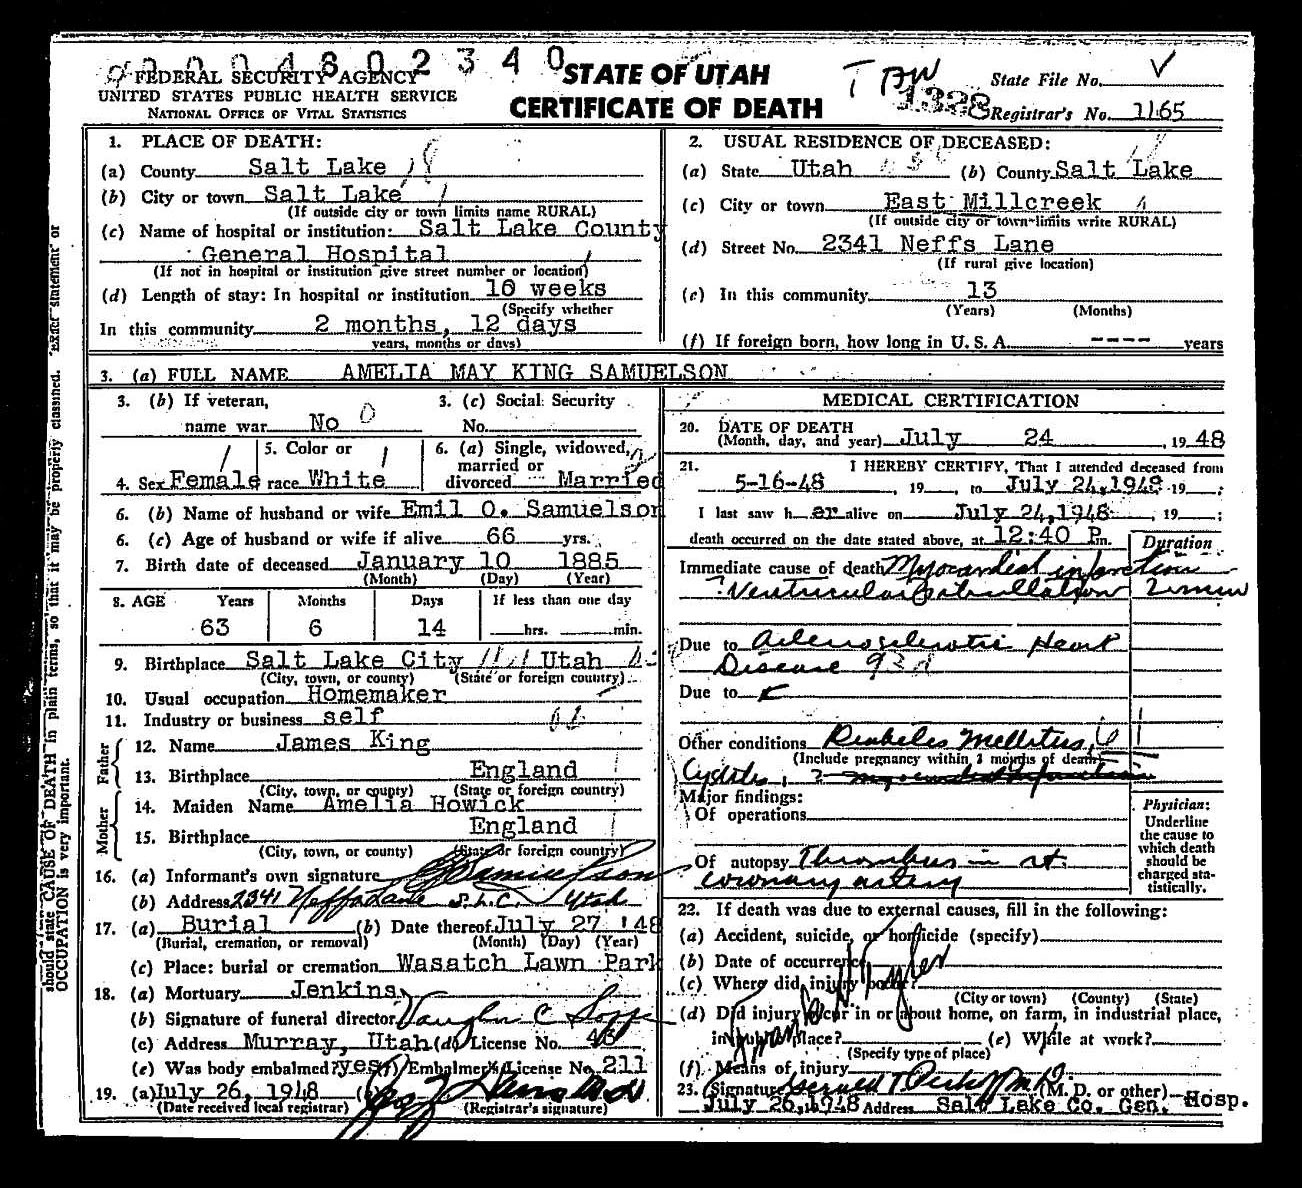 0004802340
FEDERAL SECURITY AGENCY
UNITED STATES PUBLIC HEALTH SERVICE
NATIONAL OFFICE OF VITAL STATISTICS
STATE OF UTAH
CERTIFICATE OF DEATH
1328
State File No.
Registrar's No. 1165
1. PLACE OF DEATH:
(a) County Salt Lake
(b) City or town Salt Lake
(If outside city or town limits name RURAL)
(c) Name of hospital or institution: Salt Lake County
General Hospital
(If not in hospital or institution give street number or location)
(d) Length of stay: In hospital or institution 10 weeks
(Specify whether
In this community 2 months, 12 days
years, months or days)
2. USUAL RESIDENCE OF DECEASED:
(a) State Utah (b) County Salt Lake
(c) City or town East Millcreek
(If outside city or town limits write RURAL)
(d) Street No. 2341 Neffs Lane
(If rural give location)
(e) In this community 13
(Years) (Months)
(f) If foreign born, how long in U. S. A. ---- years
3. (a) FULL NAME AMELIA MAY KING SAMUELSON
3. (b) If veteran, name war No 0
3. (c) Social Security No.
4. Sex Female
5. Color or race White
6. (a) Single, widowed, married or divorced Married
6. (b) Name of husband or wife Emil O. Samuelson
6. (c) Age of husband or wife if alive 66 yrs.
7. Birth date of deceased January 10 1885
(Month) (Day) (Year)
8. AGE Years Months Days If less than one day
63 6 14 hrs. min.
9. Birthplace Salt Lake City Utah
(City, town, or county) (State or foreign country)
10. Usual occupation Homemaker
11. Industry or business self
Father
12. Name James King
13. Birthplace England
(City, town, or county) (State or foreign country)
Mother
14. Maiden Name Amelia Howick
15. Birthplace England
(City, town, or county) (State or foreign country)
16. (a) Informant's own signature E O Samuelson
(b) Address 2341 Neffs Lane S.L.C. Utah
17. (a) Burial (b) Date thereof July 27 '48
(Burial, cremation, or removal) (Month) (Day) (Year)
(c) Place: burial or cremation Wasatch Lawn Park
18. (a) Mortuary Jenkins
(b) Signature of funeral director Vaughn C
(c) Address Murray, Utah (d) License No. 46
(e) Was body embalmed? yes (f) Embalmer's License No. 211
19. (a) July 26, 1948
(Date received local registrar) (Registrar's signature)
MEDICAL CERTIFICATION
20. DATE OF DEATH
(Month, day, and year) July 24, 1948
21. I HEREBY CERTIFY, That I attended deceased from
5-16-48, 19 , to July 24,1948 19 ;
I last saw her alive on July 24,1948, 19 ;
death occurred on the date stated above, at 12:40 P.m.
Duration
Immediate cause of death Myocardial infarction
? Ventricular fibrillation 2 min
Due to Arteriosclerotic Heart
Disease 93d
Due to
Other conditions Diabetes Mellitus, 61
(Include pregnancy within 3 months of death)
Cystitis, ? myocardial infarction
Major findings:
Of operations
Of autopsy Thrombus in rt.
coronary artery
Physician:
Underline
the cause to
which death
should be
charged sta-
tistically.
22. If death was due to external causes, fill in the following:
(a) Accident, suicide, or homicide (specify)
(b) Date of occurrence
(c) Where did injury occur?
(City or town) (County) (State)
(d) Did injury occur in or about home, on farm, in industrial place,
in public place? (e) While at work?
(Specify type of place)
(f) Means of injury
Frank H Tyler
23. Signature (M. D. or other)
July 26,1948 Address Salt Lake Co. Gen. Hosp.
should state CAUSE OF DEATH in plain terms, so that it may be properly classified. Exact statement of
OCCUPATION is very important.